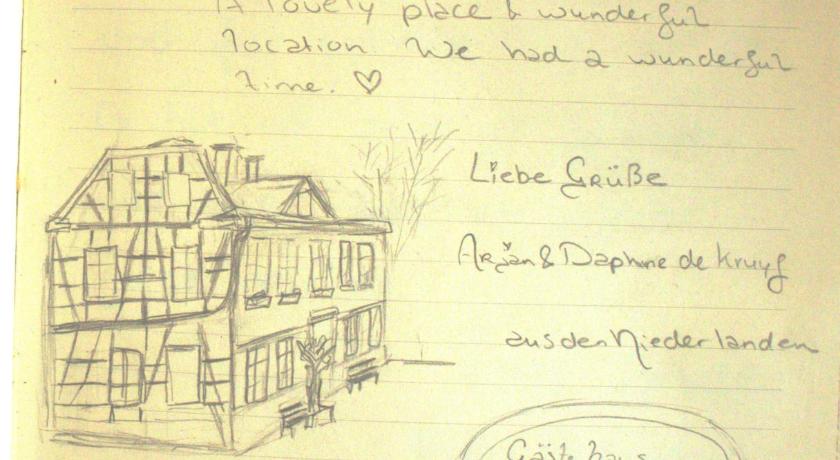 A lovely place & wunderful
location We had a wunderful
time. ♡
Liebe Grüße
Arjan & Daphne de Kruyf
aus den Niederlanden
Gästehaus